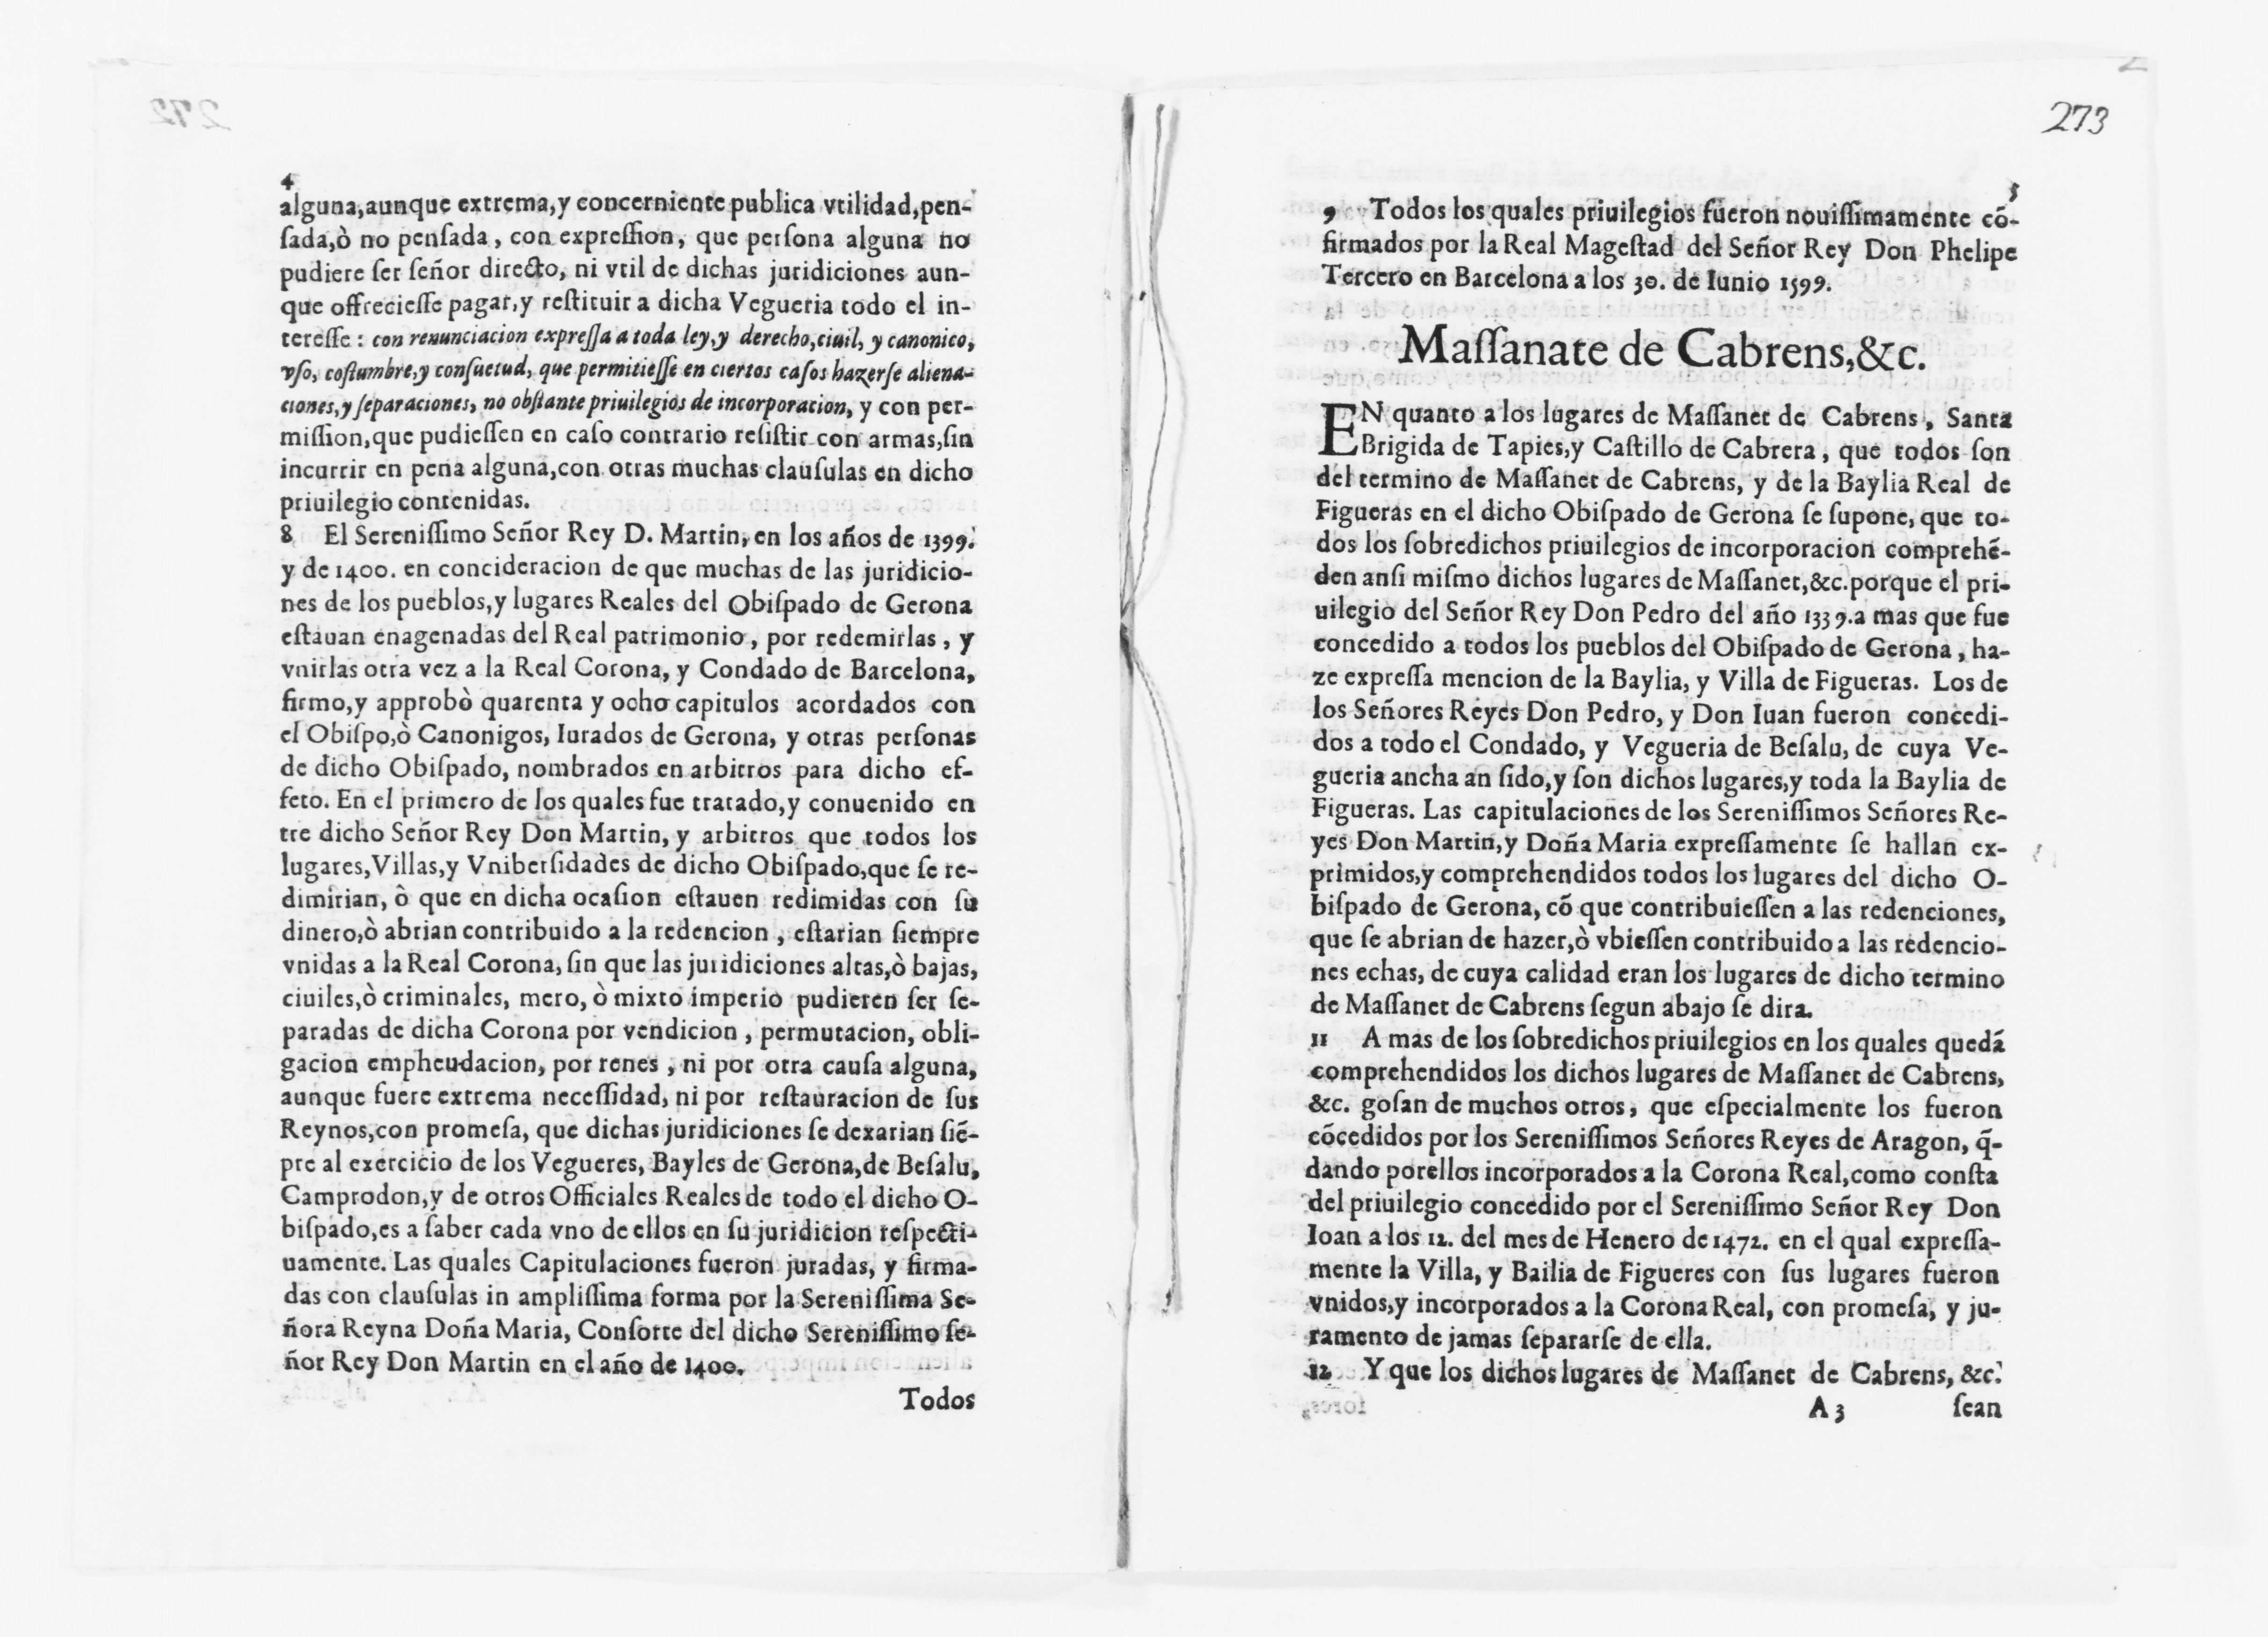 4
alguna,aunque extrema,y concerniente publica vtilidad,pen-
ſada,ò no penſada, con expreſſion, que perſona alguna no
pudiere ſer ſeñor directo, ni vtil de dichas juridiciones aun-
que offrecieſſe pagar,y reſtituir a dicha Vegueria todo el in-
tereſſe: con renunciacion expreſſa a toda ley,y derecho,ciuil, y canonico,
vſo, coſtumbre,y conſuetud, que permitieſſe en ciertos caſos hazerſe aliena-
ciones,y ſeparaciones, no obſtante priuilegios de incorporacion, y con per-
miſſion,que pudieſſen en caſo contrario reſiſtir con armas,ſin
incurrir en pena alguna,con otras muchas clauſulas en dicho
priuilegio contenidas.
8 El Sereniſſimo Señor Rey D. Martin, en los años de 1399.
y de 1400. en concideracion de que muchas de las juridicio-
nes de los pueblos,y lugares Reales del Obiſpado de Gerona
eſtauan enagenadas del Real patrimonio, por redemirlas, y
vnirlas otra vez a la Real Corona, y Condado de Barcelona,
firmo,y approbò quarenta y ocho capitulos acordados con
el Obiſpo,ò Canonigos, Iurados de Gerona, y otras perſonas
de dicho Obiſpado, nombrados en arbitros para dicho ef-
feto. En el primero de los quales fue tratado,y conuenido en
tre dicho Señor Rey Don Martin, y arbitros que todos los
lugares,Villas,y Vniberſidades de dicho Obiſpado,que ſe re-
dimirian, ò que en dicha ocaſion eſtauen redimidas con ſu
dinero,ò abrian contribuido a la redencion, eſtarian ſiempre
vnidas a la Real Corona, ſin que las juridiciones altas,ò bajas,
ciuiles,ò criminales, mero, ò mixto imperio pudieren ſer ſe-
paradas de dicha Corona por vendicion, permutacion, obli-
gacion empheudacion, por renes, ni por otra cauſa alguna,
aunque fuere extrema neceſſidad, ni por reſtauracion de ſus
Reynos,con promeſa, que dichas juridiciones ſe dexarian ſiẽ-
pre al exercicio de los Vegueres, Bayles de Gerona,de Beſalu,
Camprodon,y de otros Officiales Reales de todo el dicho O-
biſpado,es a ſaber cada vno de ellos en ſu juridicion reſpecti-
uamente. Las quales Capitulaciones fueron juradas, y firma-
das con clauſulas in ampliſſima forma por la Sereniſſima Se-
ñora Reyna Doña Maria, Conſorte del dicho Sereniſſimo ſe-
ñor Rey Don Martin en el año de 1400.
Todos
273
5
9 Todos los quales priuilegios fueron nouiſſimamente cõ-
firmados por la Real Mageſtad del Señor Rey Don Phelipe
Tercero en Barcelona a los 30. de Iunio 1599.
Maſſanate de Cabrens,&c.
EN quanto a los lugares de Maſſanet de Cabrens, Santa
Brigida de Tapies,y Caſtillo de Cabrera, que todos ſon
del termino de Maſſanet de Cabrens, y de la Baylia Real de
Figueras en el dicho Obiſpado de Gerona ſe ſupone, que to-
dos los ſobredichos priuilegios de incorporacion comprehẽ-
den anſi miſmo dichos lugares de Maſſanet,&c.porque el pri-
uilegio del Señor Rey Don Pedro del año 1339.a mas que fue
concedido a todos los pueblos del Obiſpado de Gerona, ha-
ze expreſſa mencion de la Baylia, y Villa de Figueras. Los de
los Señores Reyes Don Pedro, y Don Iuan fueron concedi-
dos a todo el Condado, y Vegueria de Beſalu, de cuya Ve-
gueria ancha an ſido,y ſon dichos lugares,y toda la Baylia de
Figueras. Las capitulaciones de los Sereniſſimos Señores Re-
yes Don Martin,y Doña Maria expreſſamente ſe hallan ex-
primidos,y comprehendidos todos los lugares del dicho O-
biſpado de Gerona, cõ que contribuieſſen a las redenciones,
que ſe abrian de hazer,ò vbieſſen contribuido a las redencio-
nes echas, de cuya calidad eran los lugares de dicho termino
de Maſſanet de Cabrens ſegun abajo ſe dira.
11 A mas de los ſobredichos priuilegios en los quales quedã
comprehendidos los dichos lugares de Maſſanet de Cabrens,
&c. goſan de muchos otros, que eſpecialmente los fueron
cõcedidos por los Sereniſſimos Señores Reyes de Aragon, q̃-
dando porellos incorporados a la Corona Real,como conſta
del priuilegio concedido por el Sereniſſimo Señor Rey Don
Ioan a los 12. del mes de Henero de 1472. en el qual expreſſa-
mente la Villa, y Bailia de Figueres con ſus lugares fueron
vnidos,y incorporados a la Corona Real, con promeſa, y ju-
ramento de jamas ſepararſe de ella.
12 Y que los dichos lugares de Maſſanet de Cabrens, &c.
A 3 ſean